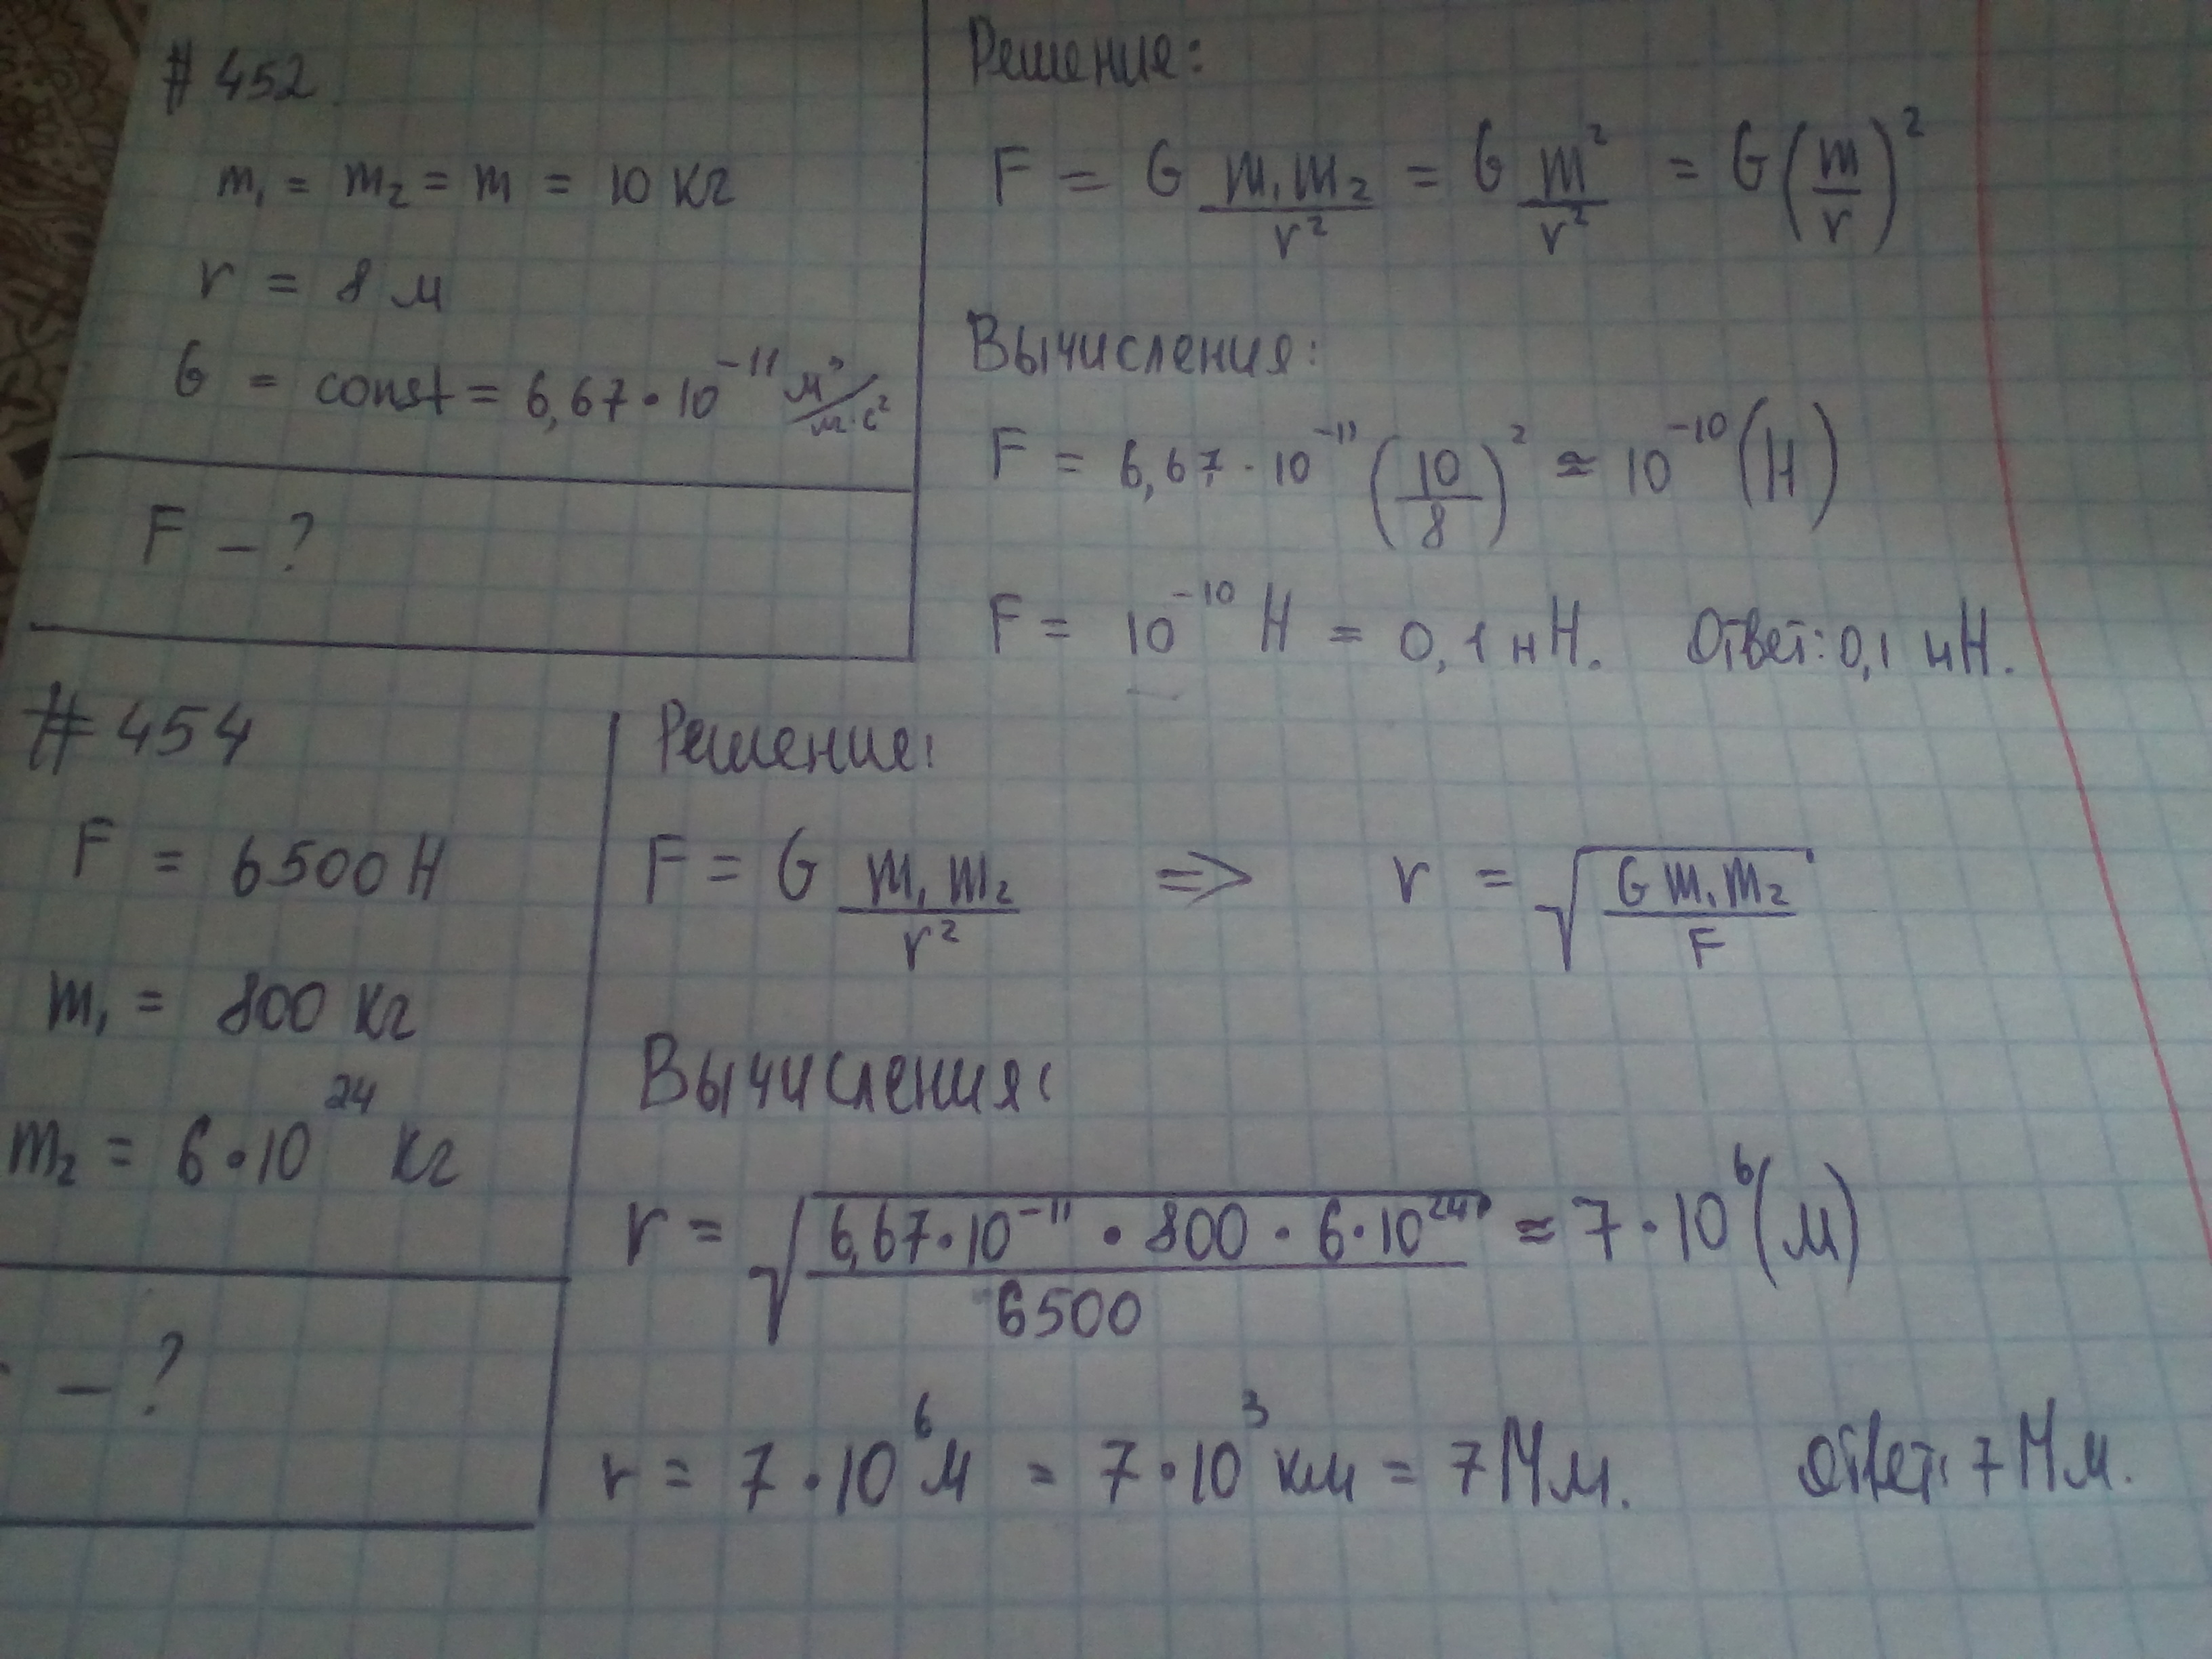 # 452
m₁ = m₂ = m = 10 кг
r = 8 м
G = const = 6,67 · 10⁻¹¹ м³/кг·с²
F – ?
Решение:
F = G m₁m₂/r² = G m²/r² = G (m/r)²
Вычисления:
F = 6,67 · 10⁻¹¹ (10/8)² ≈ 10⁻¹⁰ (Н)
F = 10⁻¹⁰ Н = 0,1 нН. Ответ: 0,1 нН.
# 454
F = 6500 Н
m₁ = 800 кг
m₂ = 6 · 10²⁴ кг
– ?
Решение:
F = G m₁ m₂/r² => r = √(G m₁ m₂/F)
Вычисления:
r = √(6,67 · 10⁻¹¹ · 800 · 6 · 10²⁴/6500) ≈ 7 · 10⁶ (м)
r = 7 · 10⁶ м = 7 · 10³ км = 7 Мм. Ответ: 7 Мм.